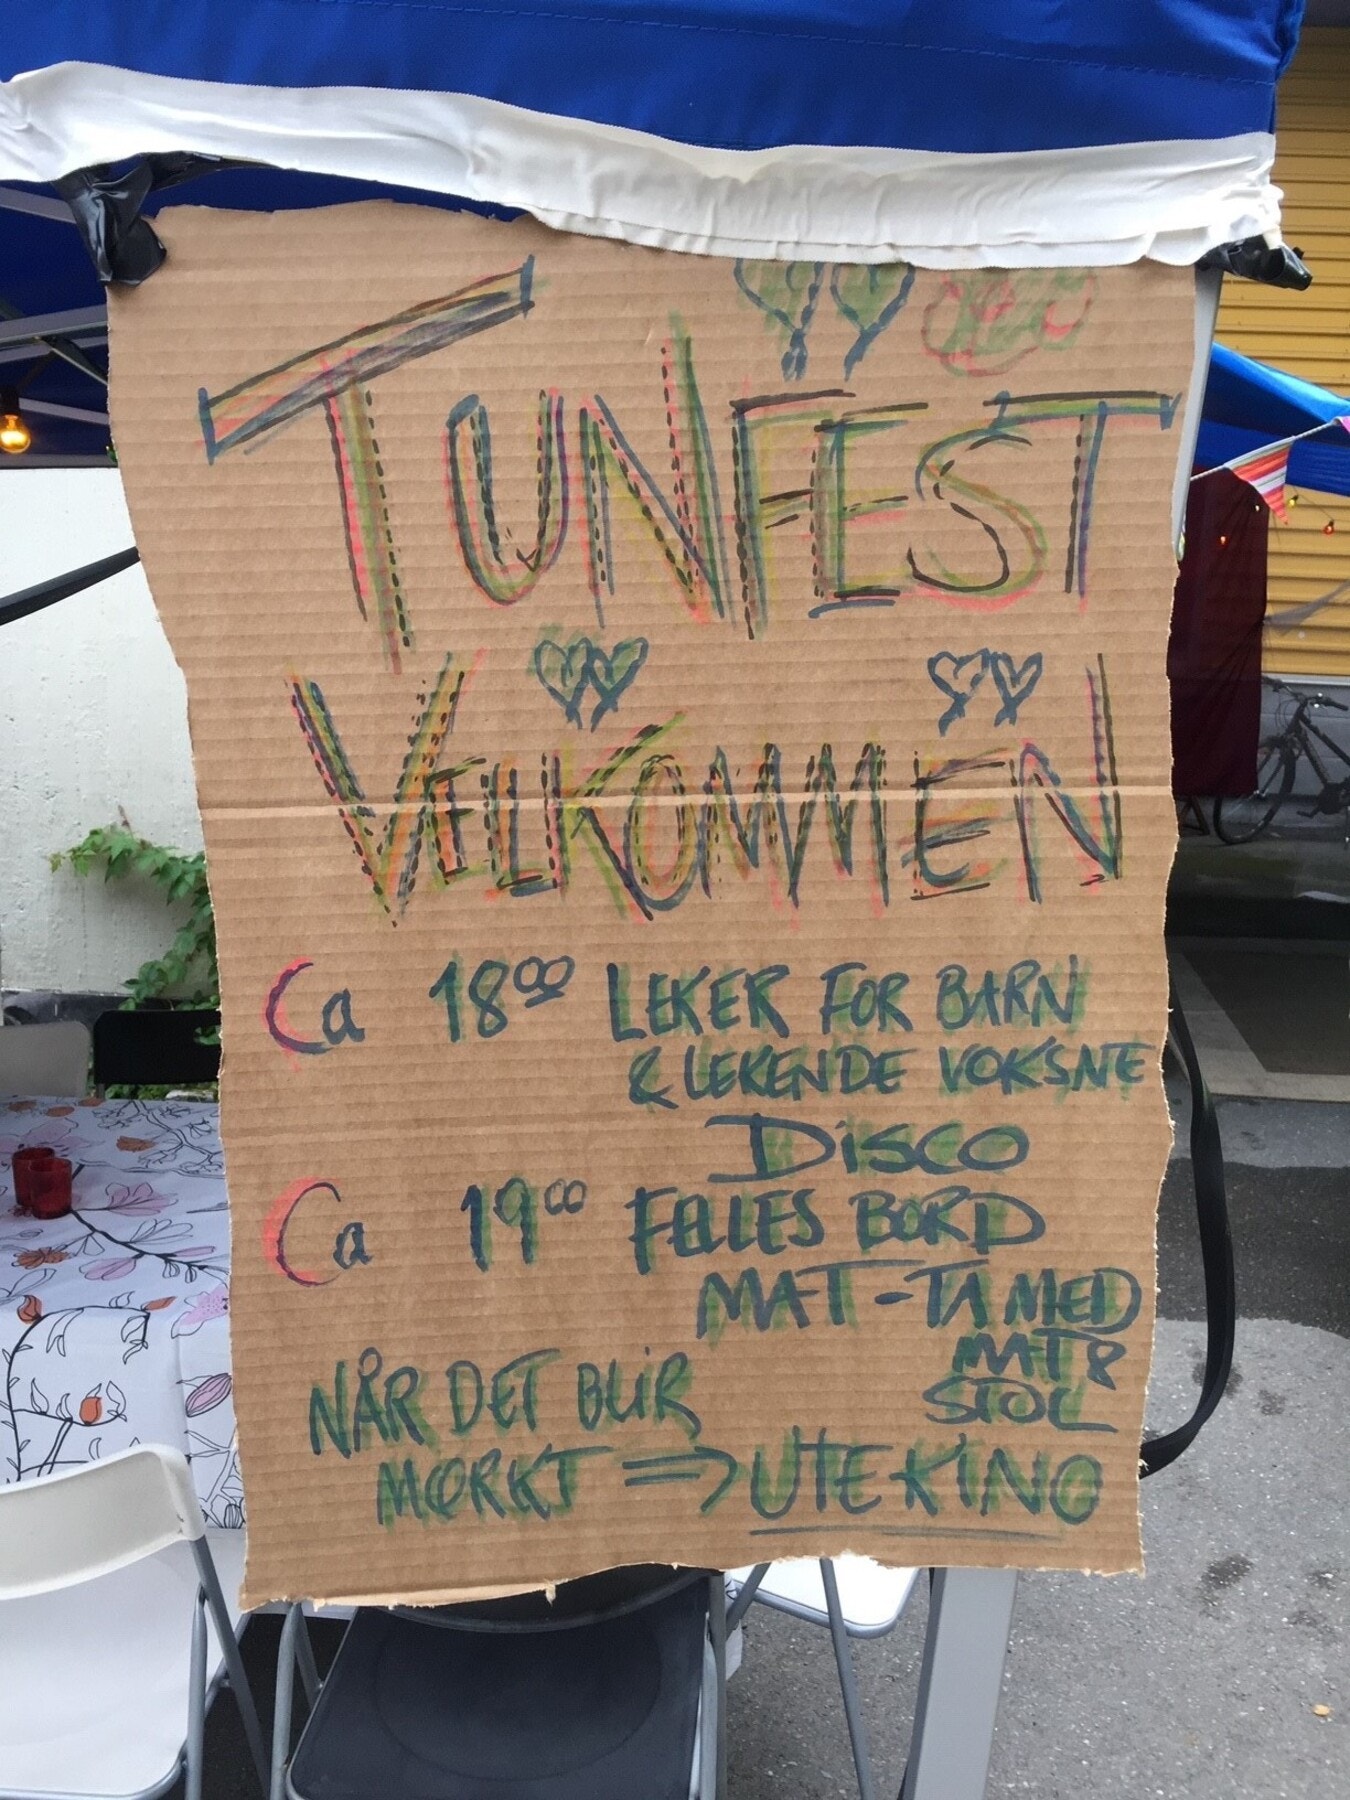 TUNFEST
VELKOMMEN
Ca 18⁰⁰ LEKER FOR BARN
& LEKENDE VOKSNE
DISCO
Ca 19⁰⁰ FELLES BORD
MAT-TA MED
MAT &
STOL
NÅR DET BLIR
MØRKT ⇒ UTEKINO